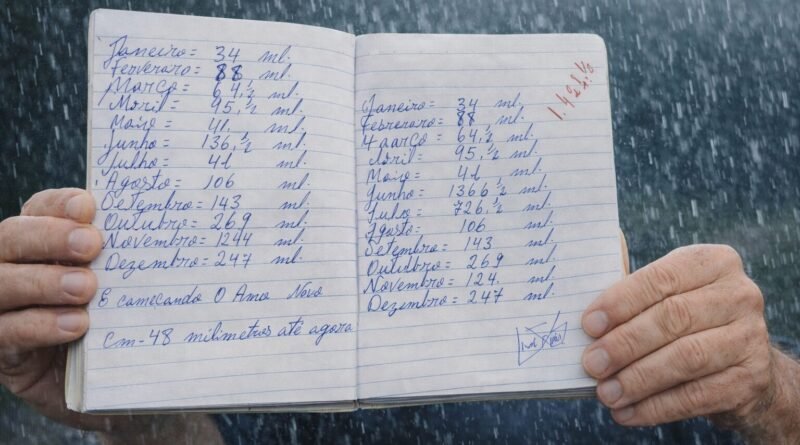 Janeiro= 34 ml.
Ferveraro= 88 ml.
Março= 64,½ ml.
Moril= 95,½ ml.
Maio= 41. ml.
Junho= 136,½ ml.
Julho= 41 ml.
Agosto= 106 ml.
Setembro= 143 ml.
Outubro= 269 ml.
Novembro= 1244 ml.
Dezembro= 247 ml.
E começando O Amo Novo
Cm-48 milimetros até agora
Janeiro= 34 ml.
Febreraro= 88 ml.
4 aarço= 64,½ ml.
Moril= 95,½ ml.
Maio= 41 ml.
Junho= 1366½ ml.
Julho= 726,½ ml.
Agosto= 106 ml.
Setembro= 143 ml.
Outubro= 269 ml.
Novembro= 124. ml.
Dezembro= 247 ml.